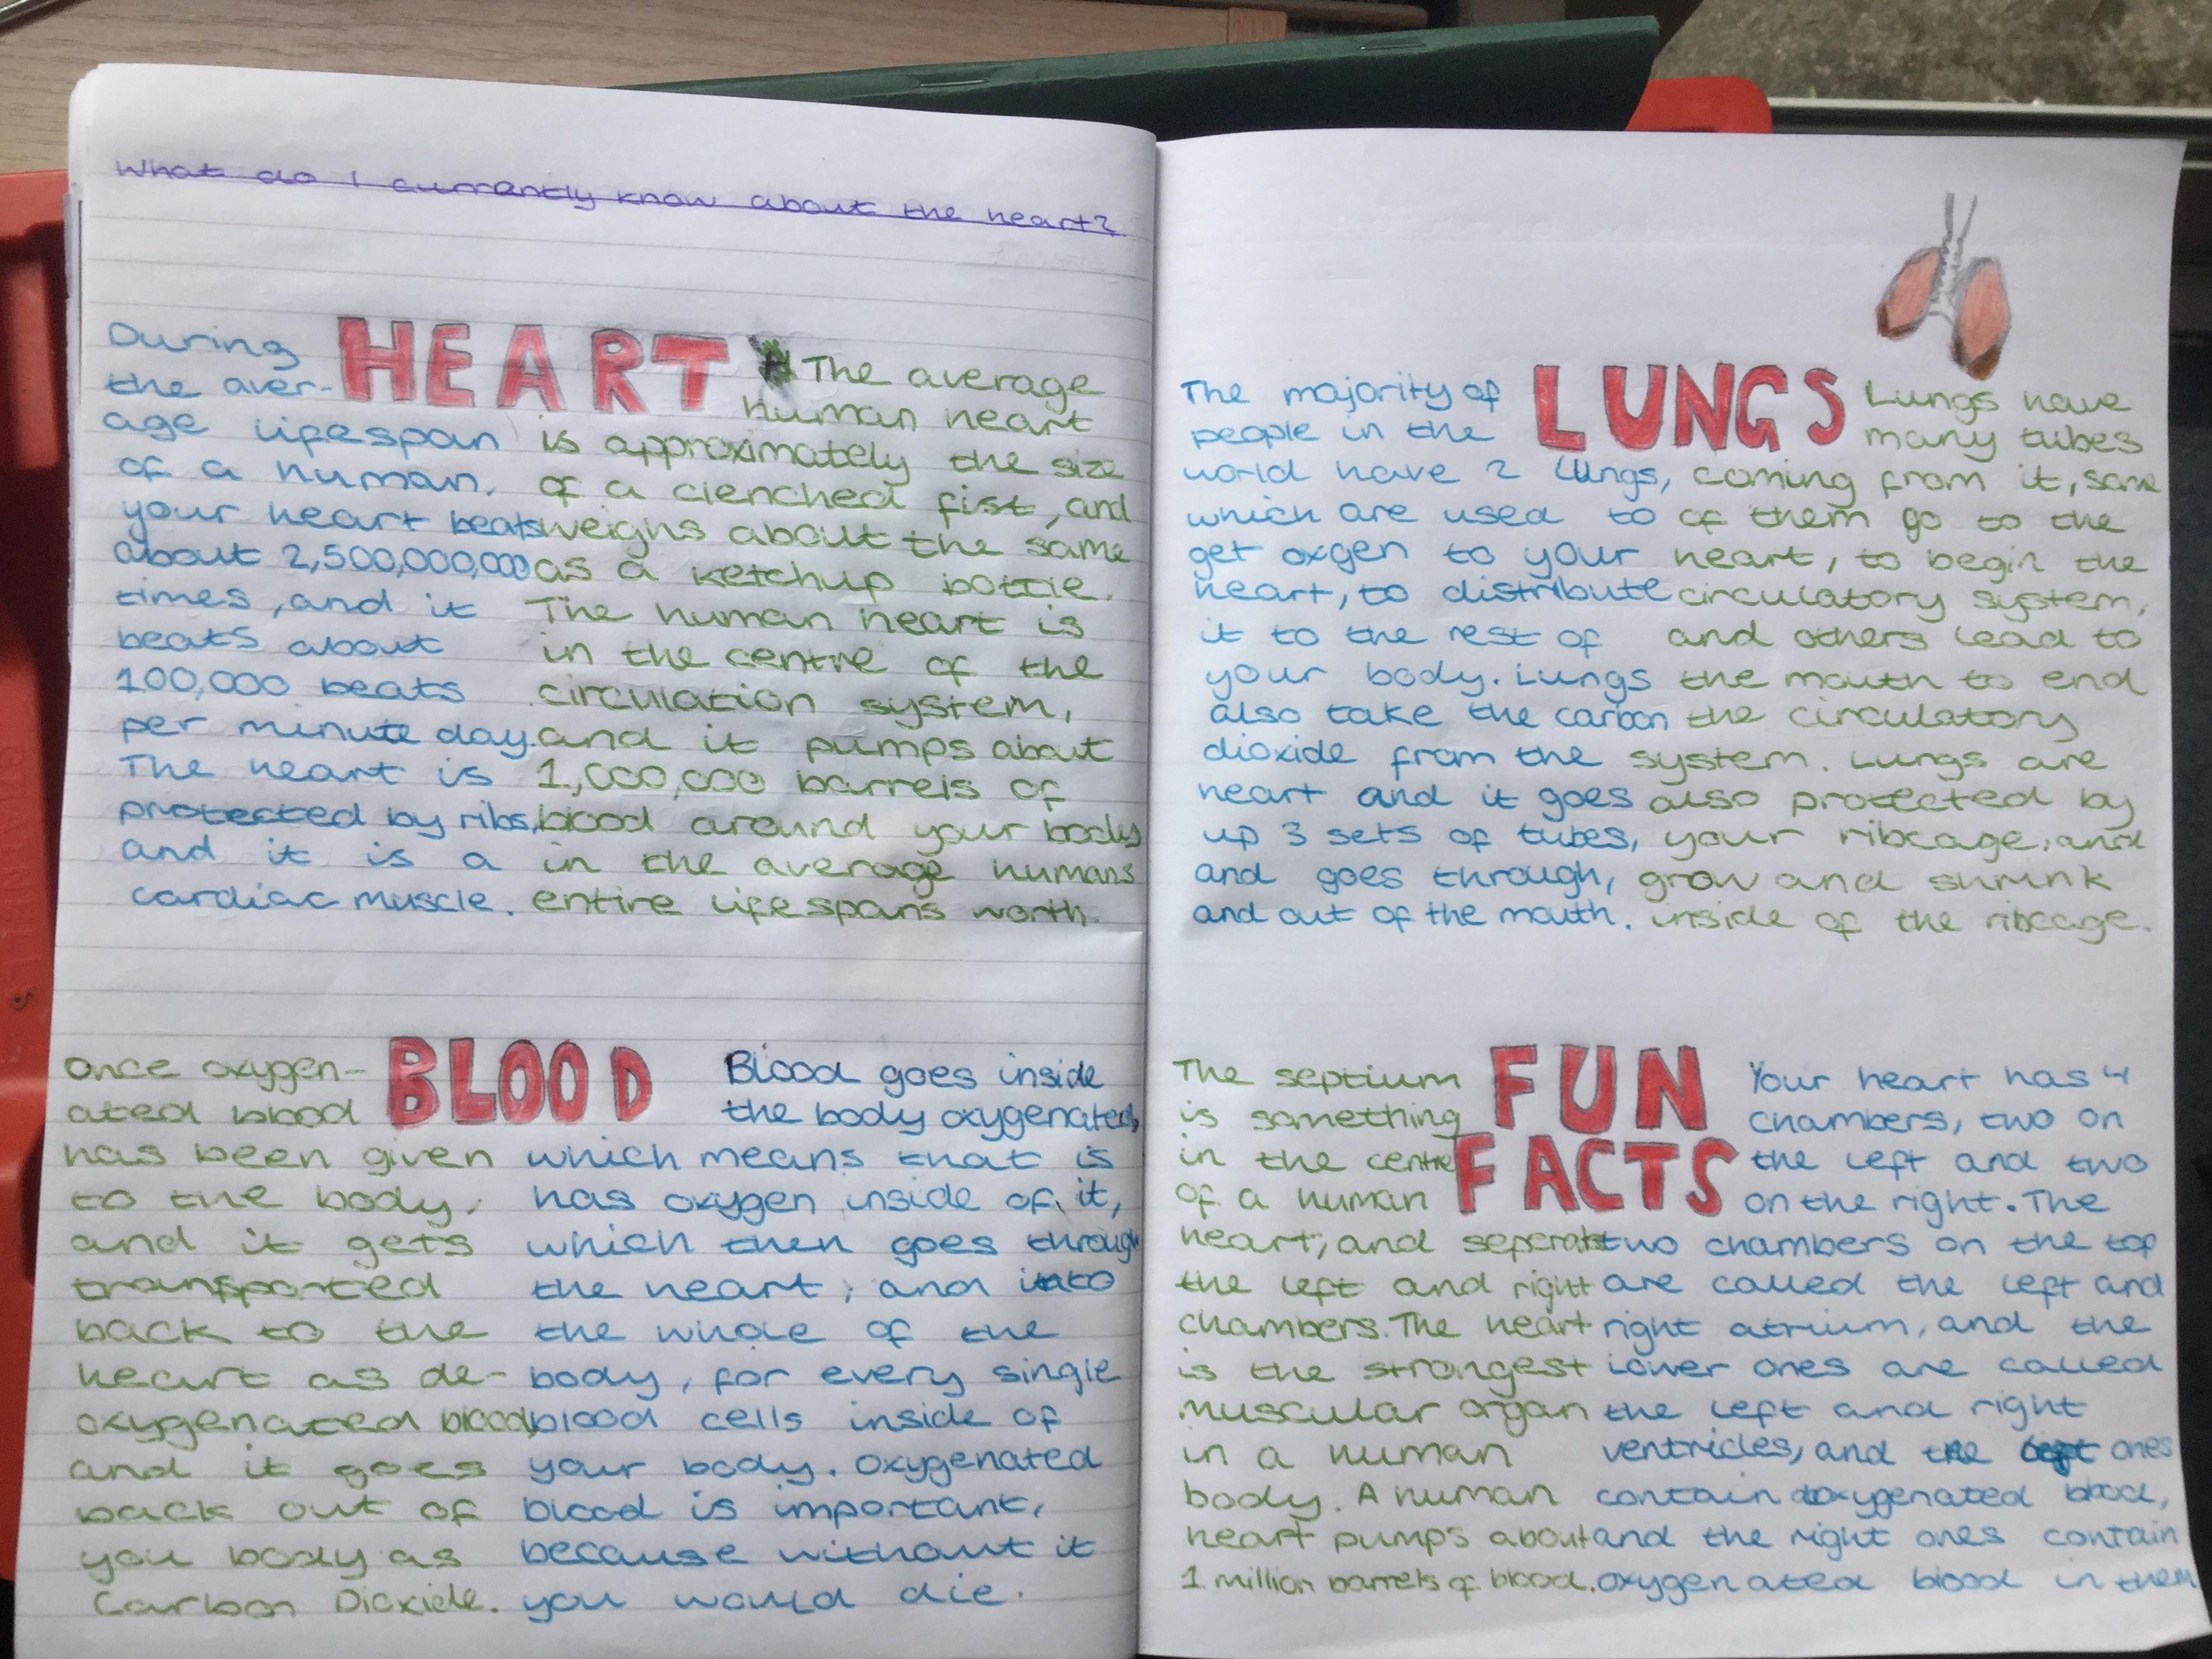 What do I currently know about the heart?
HEART
During
the aver-
age lifespan
of a human,
your heart beats
about 2,500,000,000
times, and it
beats about
100,000 beats
per minute day.
The heart is
protected by ribs,
and it is a
cardiac muscle.
The average
human heart
is approximately the size
of a clenched fist, and
weighs about the same
as a ketchup bottle.
The human heart is
in the centre of the
circulation system,
and it pumps about
1,000,000 barrels of
blood around your body
in the average humans
entire lifespans worth.
BLOOD
Once oxygen-
ated blood
has been given
to the body,
and it gets
transported
back to the
heart as de-
oxygenated blood,
and it goes
back out of
you body as
Carbon Dioxide.
Blood goes inside
the body oxygenated,
which means that is
has oxygen inside of it,
which then goes through
the heart, and into
the whole of the
body, for every single
blood cells inside of
your body. Oxygenated
blood is important,
because without it
you would die.
LUNGS
The majority of
people in the
world have 2 lungs,
which are used to
get oxgen to your
heart, to distribute
it to the rest of
your body. Lungs
also take the carbon
dioxide from the
heart and it goes
up 3 sets of tubes,
and goes through,
and out of the mouth.
Lungs have
many tubes
coming from it, some
of them go to the
heart, to begin the
circulatory system,
and others lead to
the mouth to end
the circulatory
system. Lungs are
also protected by
your ribcage, and
grow and shrink
inside of the ribcage.
FUN
FACTS
The septium
is something
in the centre
of a human
heart, and seperates
the left and right
chambers. The heart
is the strongest
muscular organ
in a human
body. A human
heart pumps about
1 million barrels of blood.
Your heart has 4
chambers, two on
the left and two
on the right. The
two chambers on the top
are called the left and
right atrium, and the
lower ones are called
the left and right
ventricles, and the left ones
contain doxygenated blood,
and the right ones contain
oxygenated blood in them